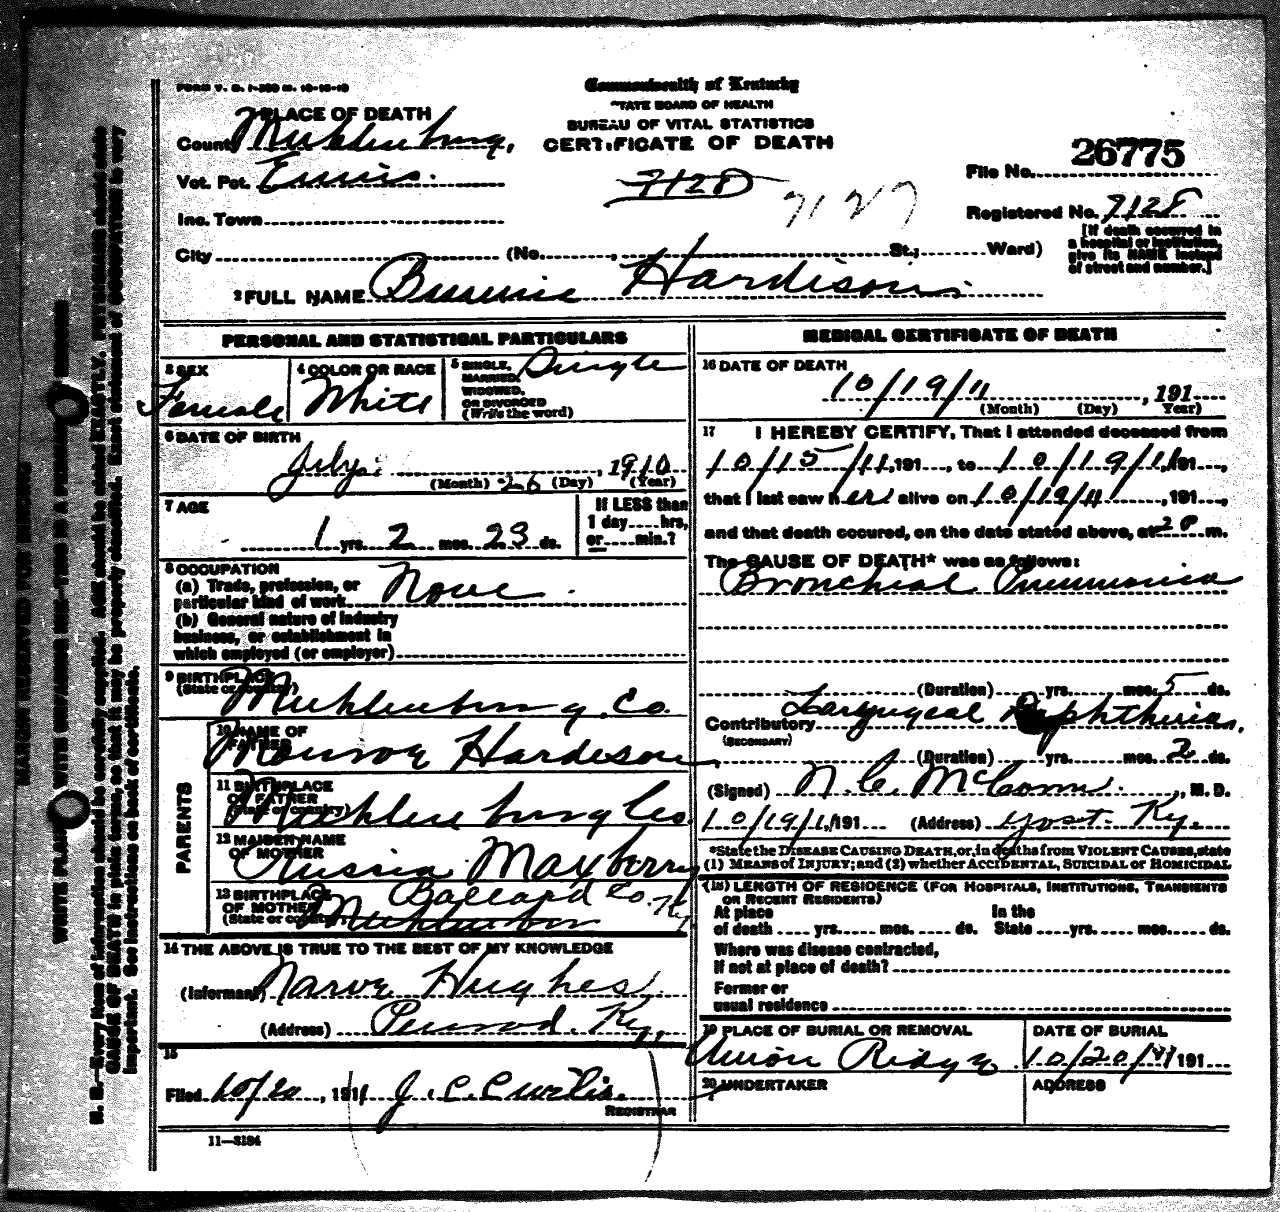 FORM V. S. 1-200 M. 10-15-10
Commonwealth of Kentucky
STATE BOARD OF HEALTH
BUREAU OF VITAL STATISTICS
CERTIFICATE OF DEATH
PLACE OF DEATH
County Muhlenburg,
Vot. Pct. Ennis.
Inc. Town
City (No. , St.; Ward)
7128 7127
26775
File No.
Registered No. 7128
[If death occurred in
a hospital or institution,
give its NAME instead
of street and number.]
2 FULL NAME Hardison
PERSONAL AND STATISTICAL PARTICULARS
3 SEX
Female
4 COLOR OR RACE
White
5 SINGLE,
MARRIED,
WIDOWED,
OR DIVORCED
(Write the word)
Single
6 DATE OF BIRTH
July 26, 1910
(Month) (Day) (Year)
7 AGE
1 yrs. 2 mos. 23 ds.
If LESS than
1 day....hrs,
or....min.?
8 OCCUPATION
(a) Trade, profession, or
particular kind of work None
(b) General nature of industry
business, or establishment in
which employed (or employer)
9 BIRTHPLACE
(State or country)
Muhlenburg. Co.
PARENTS
10 NAME OF
FATHER
Monroe Hardison
11 BIRTHPLACE
OF FATHER
(State or country)
Muhlenburg Co
12 MAIDEN NAME
OF MOTHER
Maxberry
13 BIRTHPLACE
OF MOTHER
(State or country)
Ballard Co. Ky
14 THE ABOVE IS TRUE TO THE BEST OF MY KNOWLEDGE
(Informant) Hughes
(Address) Penrod. Ky.
15
Filed 10/20, 1911 J. C. Curtis.
REGISTRAR
11—3194
MEDICAL CERTIFICATE OF DEATH
16 DATE OF DEATH
10/19/11, 191
(Month) (Day) Year)
17 I HEREBY CERTIFY, That I attended deceased from
10/15/11, 191..., to 10/19/11 191...,
that I last saw her alive on 10/19/11, 191...,
and that death occured, on the date stated above, at 2 P m.
The CAUSE OF DEATH* was as follows:
Bronchial Pneumonia
(Duration) yrs. mos. 5 ds.
Contributory Laryngeal Diphtheria,
(SECONDARY)
(Duration) yrs. mos. 2 ds.
(Signed) N. C. , M. D.
10/19/11/191 (Address) Yost- Ky.
*State the DISEASE CAUSING DEATH, or, in deaths from VIOLENT CAUSES, state
(1) MEANS of INJURY; and (2) whether ACCIDENTAL, SUICIDAL or HOMICIDAL
(18) LENGTH OF RESIDENCE (FOR HOSPITALS, INSTITUTIONS, TRANSIENTS
OR RECENT RESIDENTS)
At place
of death .... yrs. .... mos. .... ds.
In the
State .... yrs. .... mos. .... ds.
Where was disease contracted,
If not at place of death?
Former or
usual residence
19 PLACE OF BURIAL OR REMOVAL
Union Ridge
DATE OF BURIAL
10/20/11 191
20 UNDERTAKER
ADDRESS
MARGIN RESERVED FOR BINDING
WRITE PLAINLY WITH UNFADING INK—THIS IS A PERMANENT RECORD
N. B.—Every item of information should be carefully supplied. AGE should be stated EXACTLY. PHYSICIANS should state
CAUSE OF DEATH in plain terms, so that it may be properly classified. Exact statement of OCCUPATION is very
important. See instructions on back of certificate.